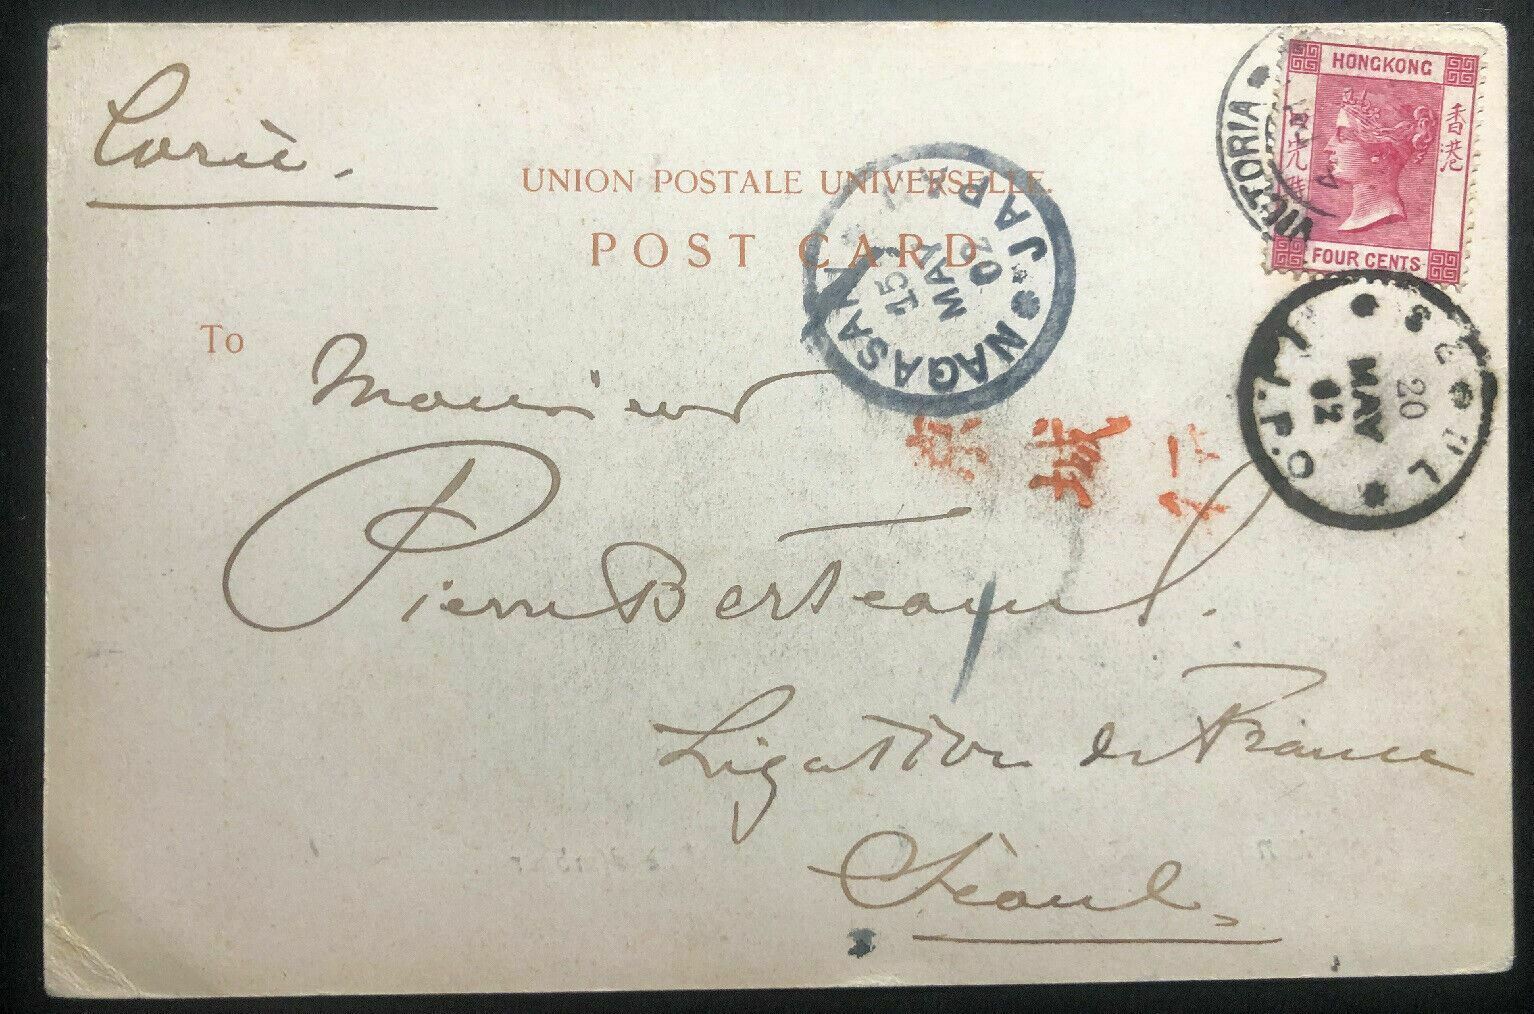 Corée.
UNION POSTALE UNIVERSELLE.
POST CARD
To
Monsieur
Pierre Berteaux.
Légation de France
Séoul
HONGKONG
香港
FOUR CENTS
VICTORIA
NAGASAKI
15
MAY
02
JAPAN
SEOUL
20
MAY
02
城